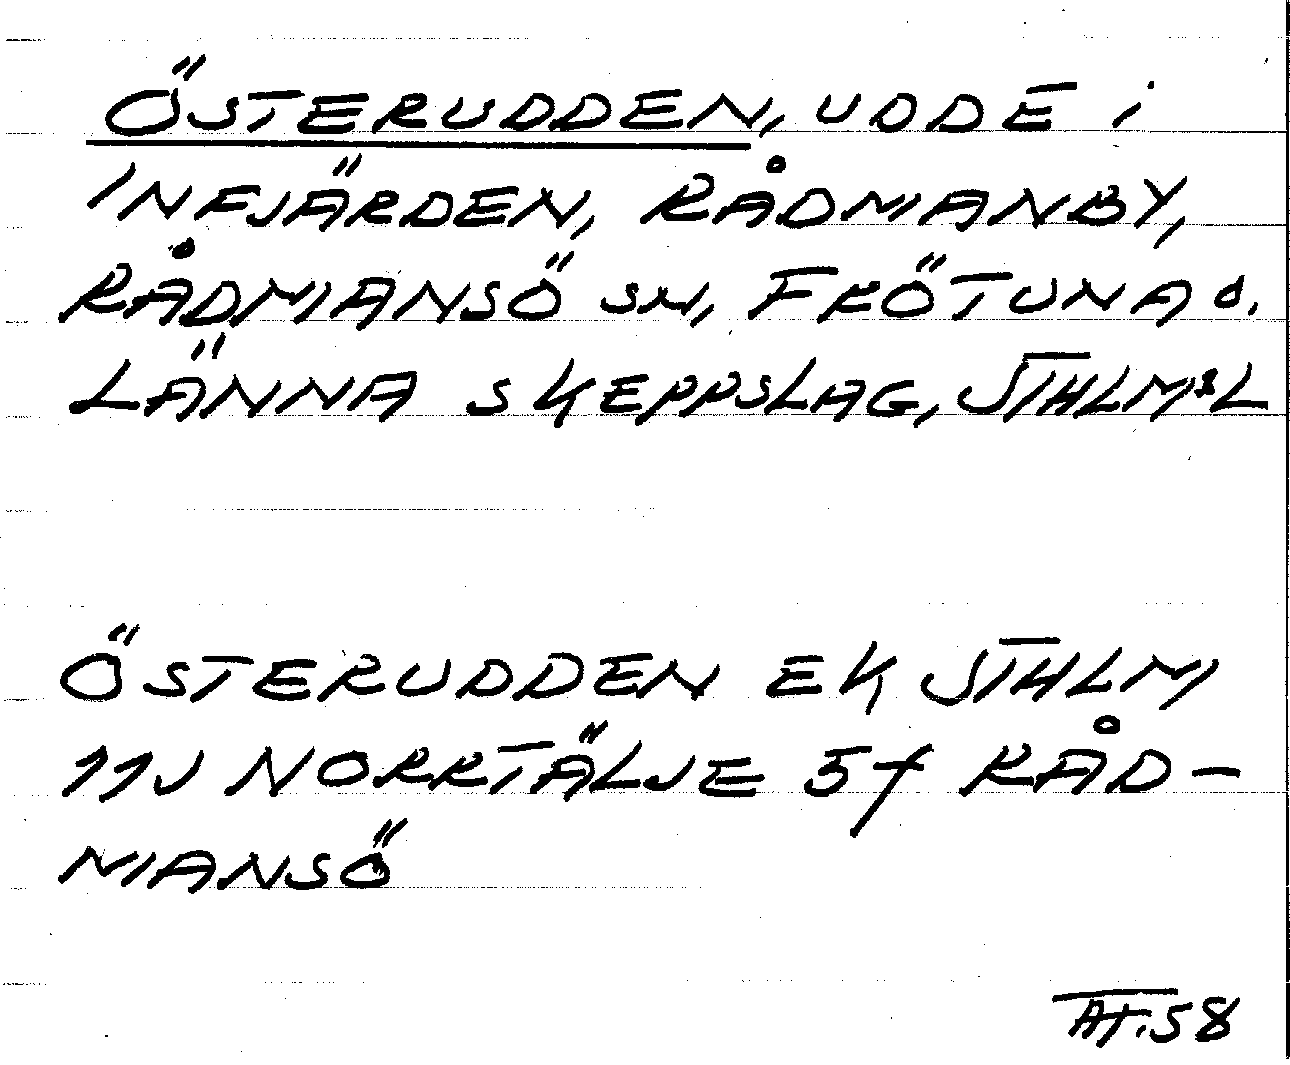 ÖSTERUDDEN, UDDE i
INFJÄRDEN, RÅDMANBY,
RÅDMANSÖ SN, FRÖTUNA O.
LÄNNA SKEPPSLAG, STHLMSL
ÖSTERUDDEN EK STHLM
11J NORRTÄLJE 57 RÅD-
MANSÖ
AT.58